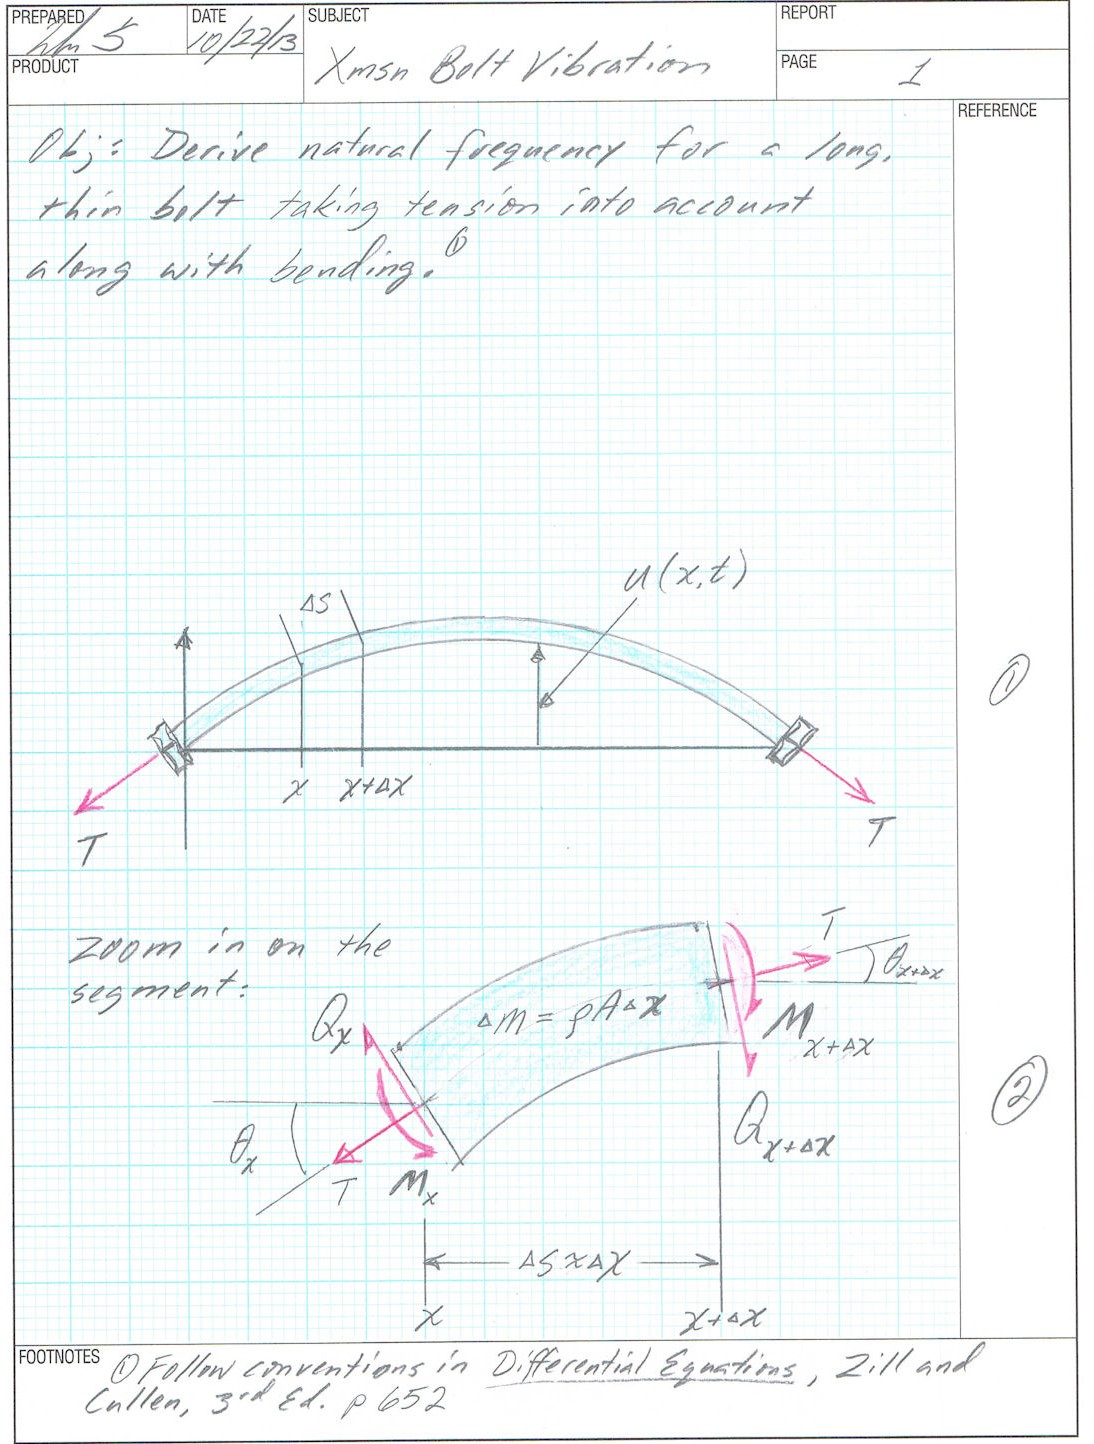 PREPARED
DATE
10/22/13
SUBJECT
Xmsn Bolt Vibration
REPORT
PRODUCT
PAGE
1
REFERENCE
Obj: Derive natural frequency for a long,
thin bolt taking tension into account
along with bending.①
u(x,t)
ΔS
①
x
x+Δx
T
T
Zoom in on the
segment:
T
θx+Δx
Qx
Δm = ρAΔx
Mx+Δx
②
θx
Qx+Δx
T
Mx
ΔS≈Δx
x
x+Δx
FOOTNOTES
① Follow conventions in Differential Equations, Zill and
Cullen, 3rd Ed. p 652